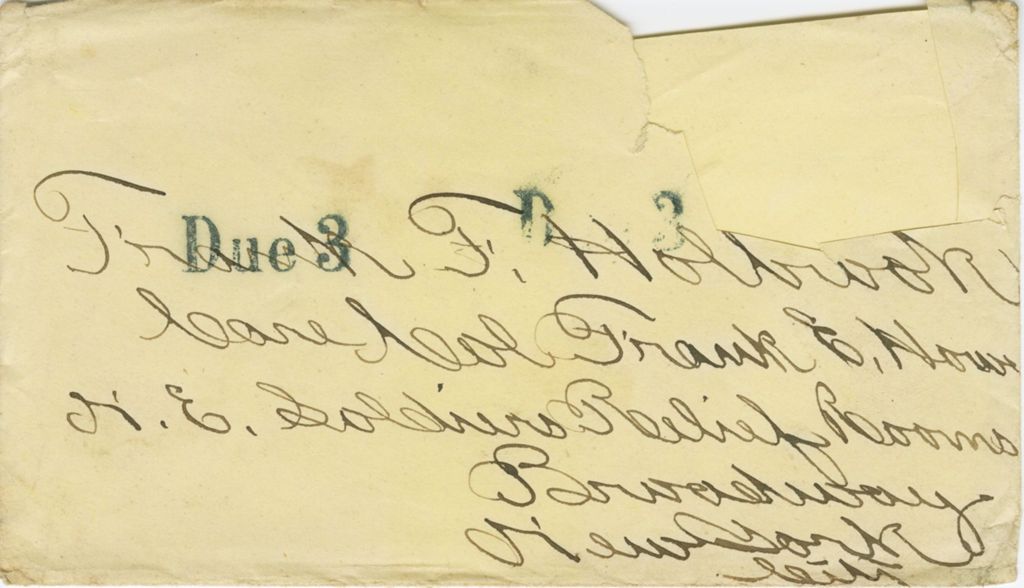 Due 3 D 3
Frank F. Holbrook
Care Col Frank E. Howe
N. E. Soldiers Relief Rooms
Broadway
New York
City